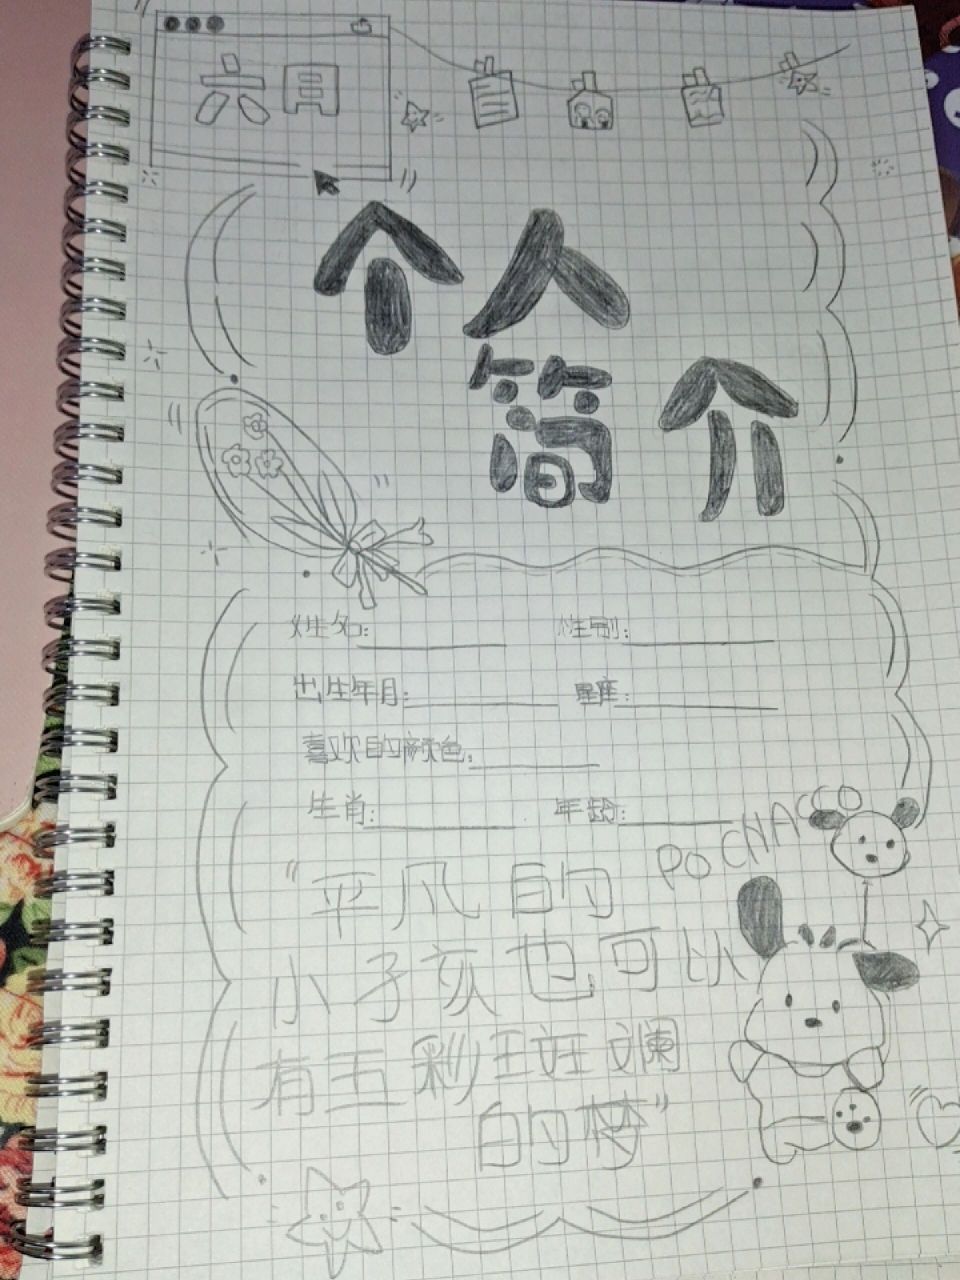 六月
个人
简介
姓名: 性别:
出生年月: 星座:
喜欢的颜色:
生肖: 年龄:
POCHACCO
"平凡的
小子灰也可以
有五彩斑斓
的梦"